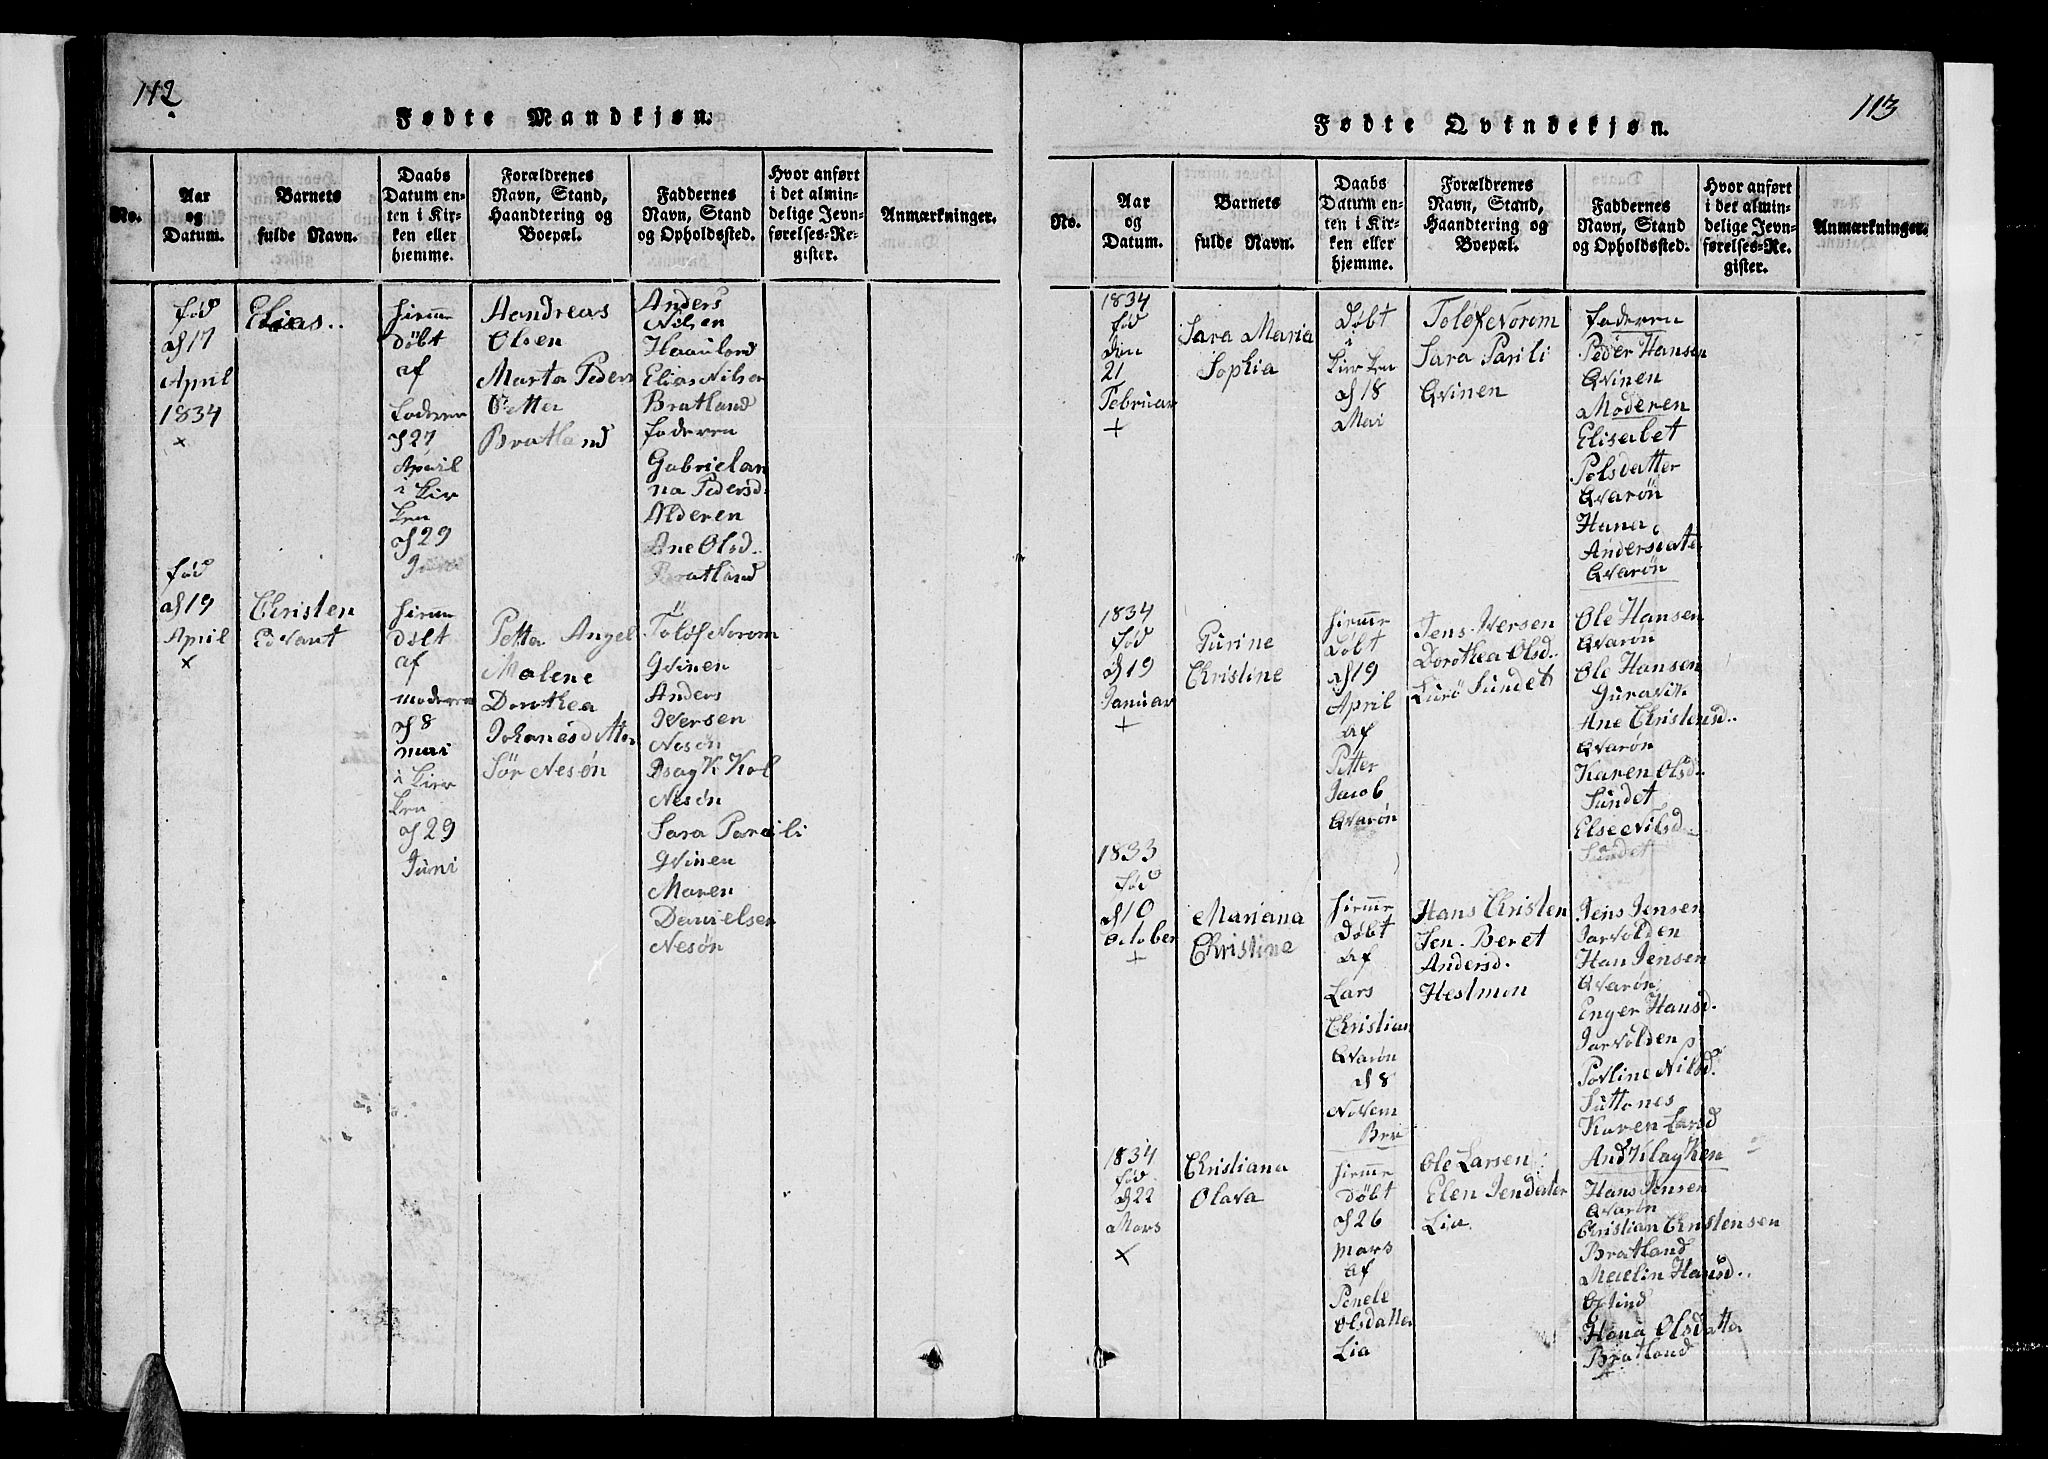 112
Fødte Mandkjøn.
No.
Aar
og
Datum.
Barnets
fulde Navn.
Daabs
Datum en-
ten i Kir-
ken eller
hjemme.
Forældrenes
Navn, Stand,
Haandtering og
Boepæl.
Faddernes
Navn, Stand
og Opholdssted.
Hvor anført
i det almin-
delige Jevn-
førelses-Re-
gister.
Anmærkninger.
fød
d 17
April
1834
×
Elias..
hiemme
døbt
af
faderen
d 27
April
i Kir
ken
d 29
Juni
Aandreas
Olsen
Marta Peders
Detter
Bratland
Anders
Nilsen
Haaulord
Elias Nilsen
Bratland
faderen
Gabrielan
na Pedersd.
Alderen
Ane Olsd..
Bratland
fød
d 19
April
×
Christen
Edvart
hiemm
døbt
af
moderen
d 8
mai
i Kir
ken
d 29
Juni
Petter Angel
Malene
Dorothea
Johanisdatter
Sör Nesøn
Toløf Norom
Qvinen
Anders
Iversen
Nesøn
Isag K. Kol
Nesøn
Sara Parsili
Qvinen
Maren
Danielsen
Nesøn
113
Fødte Qvindekjøn.
No.
Aar
og
Datum.
Barnets
fulde Navn.
Daabs
Datum en-
ten i Kir-
ken eller
hjemme.
Forældrenes
Navn, Stand,
Haandtering og
Boepæl.
Faddernes
Navn, Stand
og Opholdssted.
Hvor anført
i det almin-
delige Jevn-
førelses-Re-
gister.
Anmærkninger.
1834
fød
den
21
Februar
+
Sara Maria
Sophia
Døbt
i
Kirken
d 18
Mai
Toløf Norom
Sara Parsili
Qvinen
Faderen
Peder Hansen
Qvinen
Moderen
Elisabet
Polsdatter
Qvarøn
Hana
Andersdater
Qvarøn
1834
fød
d 19
Januar
+
Purine
Christine
hiemme
Døbt
d 19
April
af
Petter
Jacob
Qvarøn
Jens Iversen
Dorothea Olsd..
Lurö Sundet
Ole Hansen
Qvarøn
Ole Hansen
Guravik
Ane Christensd..
Qvarøn
Karen Olsd..
Sundet
Else Nilsd..
Sundet
1833
fød
d 10
October
+
Mariana
Christine
hiemme
Døbt
af
Lars
Christian
Qvarøn
d 8
Novem
Ber
Hans Christen
Sen. Beret
Andersd.
Hestmon
Jens Jensen
Jarvolden
Han Jensen
Qvarøn
Enger Hansd.
Jarvolden
Povline Nilsd.
Suttones
Karen Larsd
1834
fød
d 22
Mars
×
Christiana
Olava
hiemme
døbt
d 26
mars
af
Penele
Olsdatter
Lia
Ole Larsen
Elen Jensdater
Lia
And Klagken
Hans Jensen
Qvarøn
Christian Christensen
Bratland
Maelin Hansd..
Hana Olsdatter
Bratland